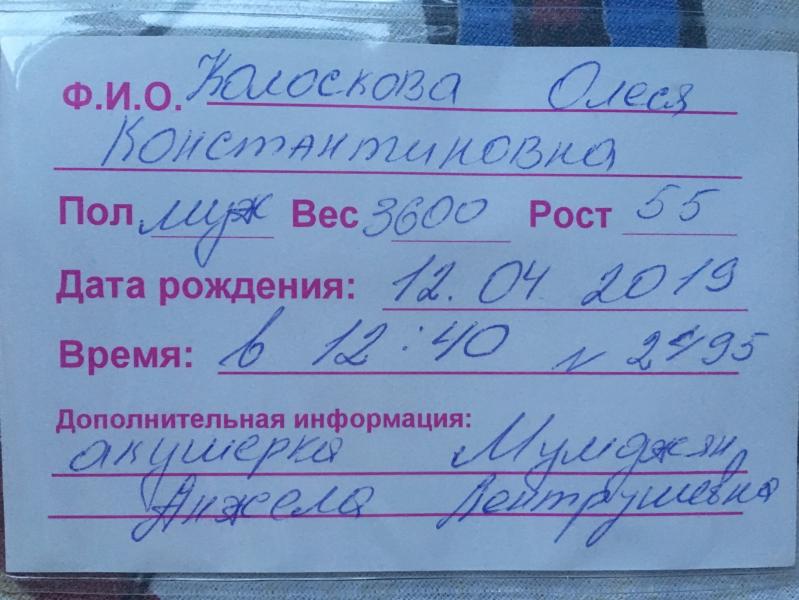 Ф.И.О. Колоскова Олеся
Константиновна
Пол муж Вес 3600 Рост 55
Дата рождения: 12.04 2019
Время: в 12:40 N
Дополнительная информация:
акушерка Мумджян
Анжела